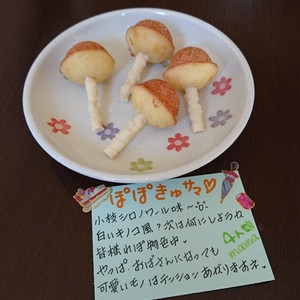 ぽぽきゅサマ♡
小枝シロノワール味～
白いキノコ風?次は何にしようね
皆様れぽ物色中。
やっぱ、おばさんになっても
可愛いモノはテンション あがりますネ。
4人目
mama